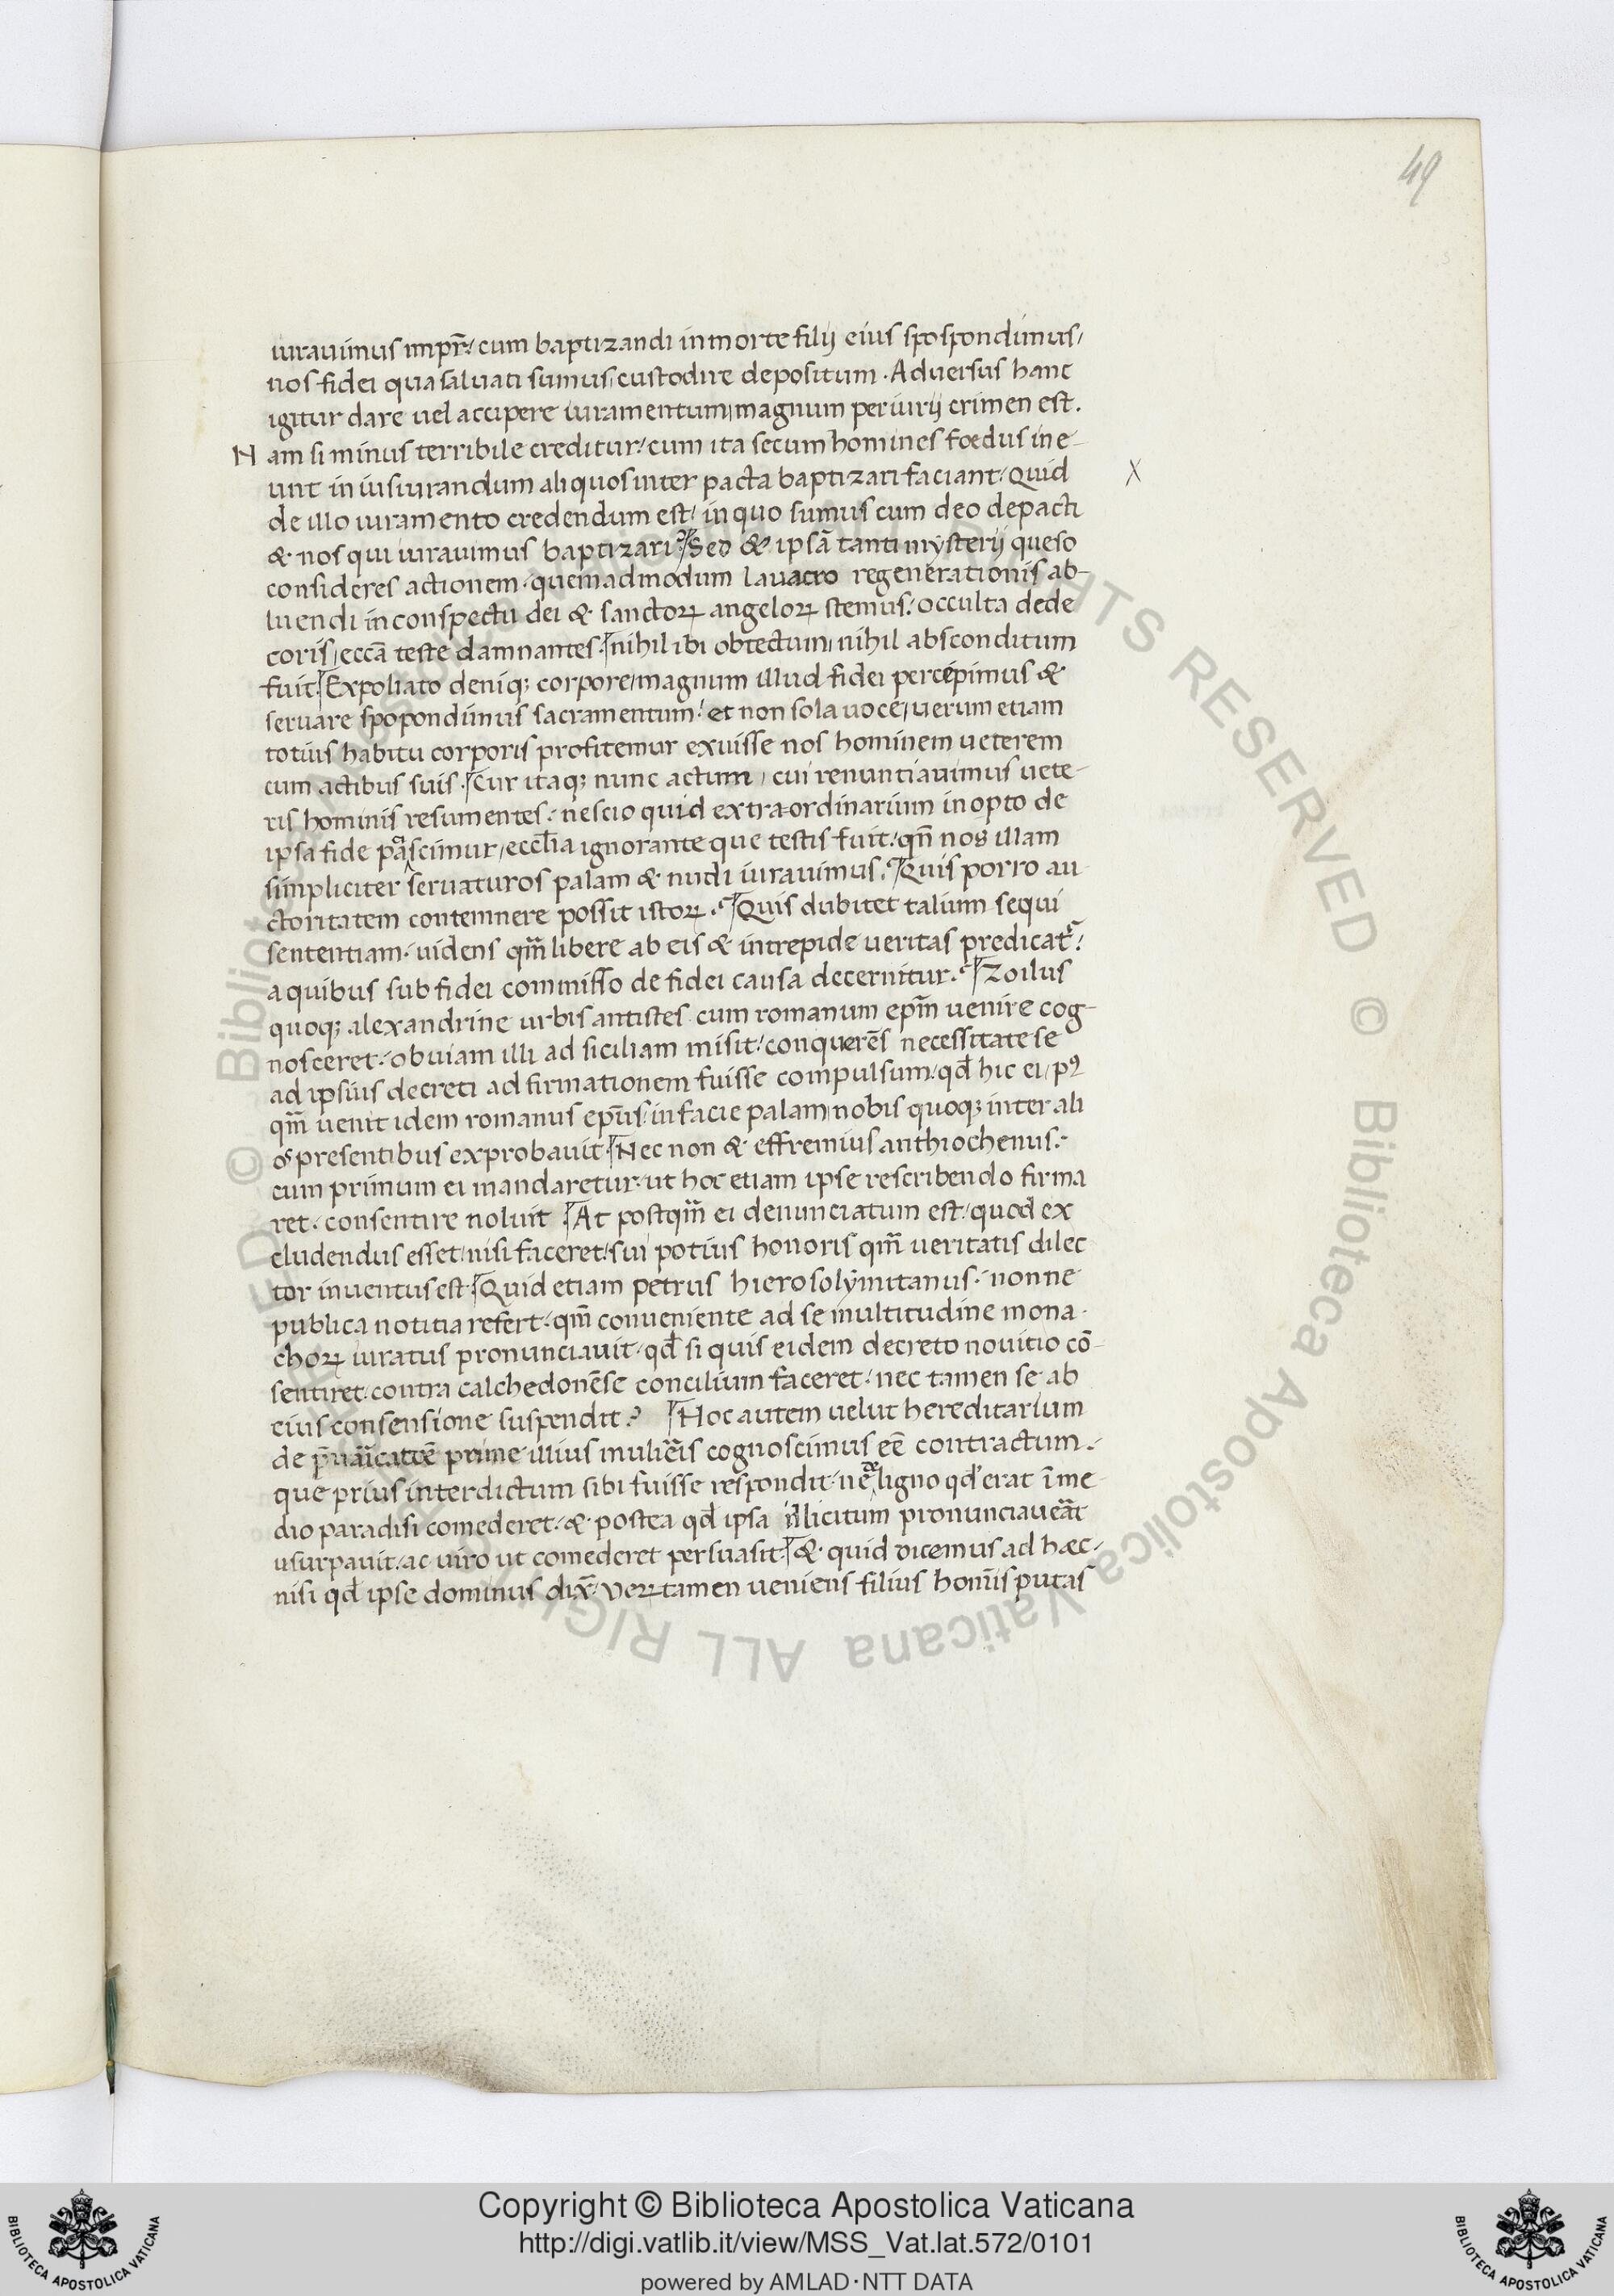 49
iurauimus impr̄. cum baptizandi in morte filij eius spospondimus,
nos fidei qua saluati sumus, custodire depositum. Aduersus hanc
igitur dare uel accipere iuramentum, magnum periurij crimen est.
Nam si minus terribile creditur. cum ita secum homines fœdus ine-
unt in iusiurandum aliquos inter pacta baptizari faciant. Quid
de illo iuramento credendum est, in quo sumus cum deo depacti
& nos qui iurauimus baptizari? Sed & ipsā tanti mysterij queso
consideres actionem. quemadmodum lauacro regenerationis ab-
luendi in conspectu dei & sanctoꝝ angeloꝝ stemus. occulta dede
coris, eccā teste damnantes. nihil ibi obtectum, nihil absconditum
fuit. Expoliato deniqꝫ corpore, magnum illud fidei percepimus &
seruare spopondimus sacramentum. et non sola uoce, uerum etiam
totius habitu corporis profitemur exuisse nos hominem ueterem
cum actibus suis. Cur itaqꝫ nunc actum, cui renuntiauimus uete-
ris hominis resumentes. nescio quid extraordinarium in opto de
ipsa fide pascimur, eccl̄ia ignorante que testis fuit. qn̄ nos illam
simpliciter seruaturos palam & nudi iurauimus. Quis porro au
ctoritatem contemnere possit istoꝝ. Quis dubitet talium sequi
sententiam. uidens qm̄ libere ab eis & intrepide ueritas predicat᷑.
a quibus sub fidei commisso de fidei causa decernitur. Zoilus
quoqꝫ alexandrine urbis antistes cum romanum epm̄ uenire cog-
nosceret. obuiam illi ad siciliam misit. conquerēs necessitate se
ad ipsius decreti ad firmationem fuisse compulsum. qd̄ hic ei, pꝰ
qm̄ uenit idem romanus ep̄us, in facie palam, nobis quoqꝫ inter ali
os presentibus exprobauit. Nec non & effremius anthiochenus.
cum primum ei mandaretur. ut hoc etiam ipse rescribendo firma
ret. consentire noluit. At postqm̄ ei denunciatum est. quod ex
cludendus esset, nisi faceret. sui potius honoris qm̄ ueritatis dilec
tor inuentus est. Quid etiam petrus hierosolymitanus. nonne
publica notitia refert. qm̄ conueniente ad se multitudine mona-
choꝝ iuratus pronunciauit. qd̄ si quis eidem decreto nouitio cō-
sentiret. contra calchedonēse concilium faceret. nec tamen se ab
eius consensione suspendit? Hoc autem uelut hereditarium
de prime illius mulieris cognoscimus eē contractum.
que prius interdictum sibi fuisse respondit. ne de ligno qd̄ erat ī me
dio paradisi comederet. & postea qd̄ ipsa illicitum pronunciaueāt
usurpauit. ac uiro ut comederet persuasit. & quid dicemus ad hæc.
nisi qd̄ ipse dominus dix̄. Veꝝtamen ueniens filius homīs putas
X
Copyright © Biblioteca Apostolica Vaticana
http://digi.vatlib.it/view/MSS_Vat.lat.572/0101
powered by AMLAD·NTT DATA
BIBLIOTECA APOSTOLICA VATICANA
BIBLIOTECA APOSTOLICA VATICANA
© Biblioteca Apostolica Vaticana ALL RIGHTS RESERVED